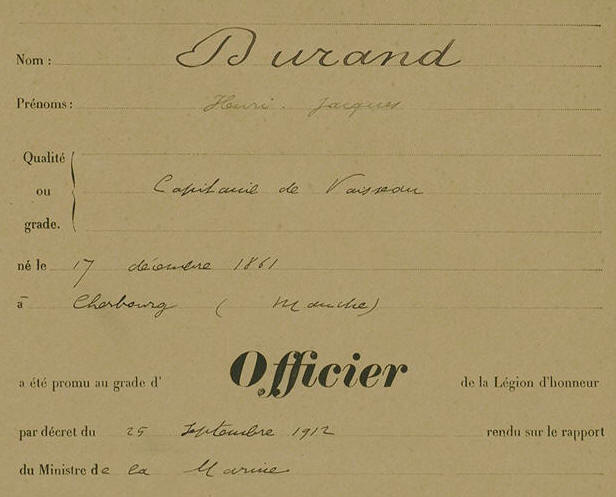 Nom : Durand
Prénoms : Henri. Jacques
Qualité
ou Capitaine de Vaisseau
grade.
né le 17 décembre 1861
à Cherbourg ( Manche)
a été promu au grade d' Officier de la Légion d'honneur
par décret du 25 Septembre 1912 rendu sur le rapport
du Ministre de la Marine